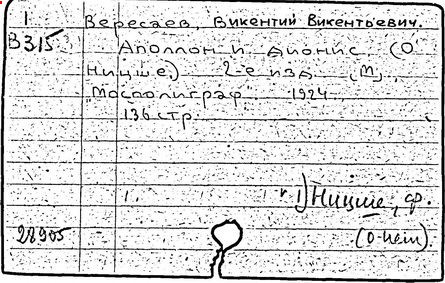 1
Вересаев, Викентий Викентьевич.
В315
Аполлон и Дионис (О
Ницше.) 2-е изд. М,
"Мосполиграф" 1924.
136 стр.
1) Ницше, ф.
28905
(о нем).